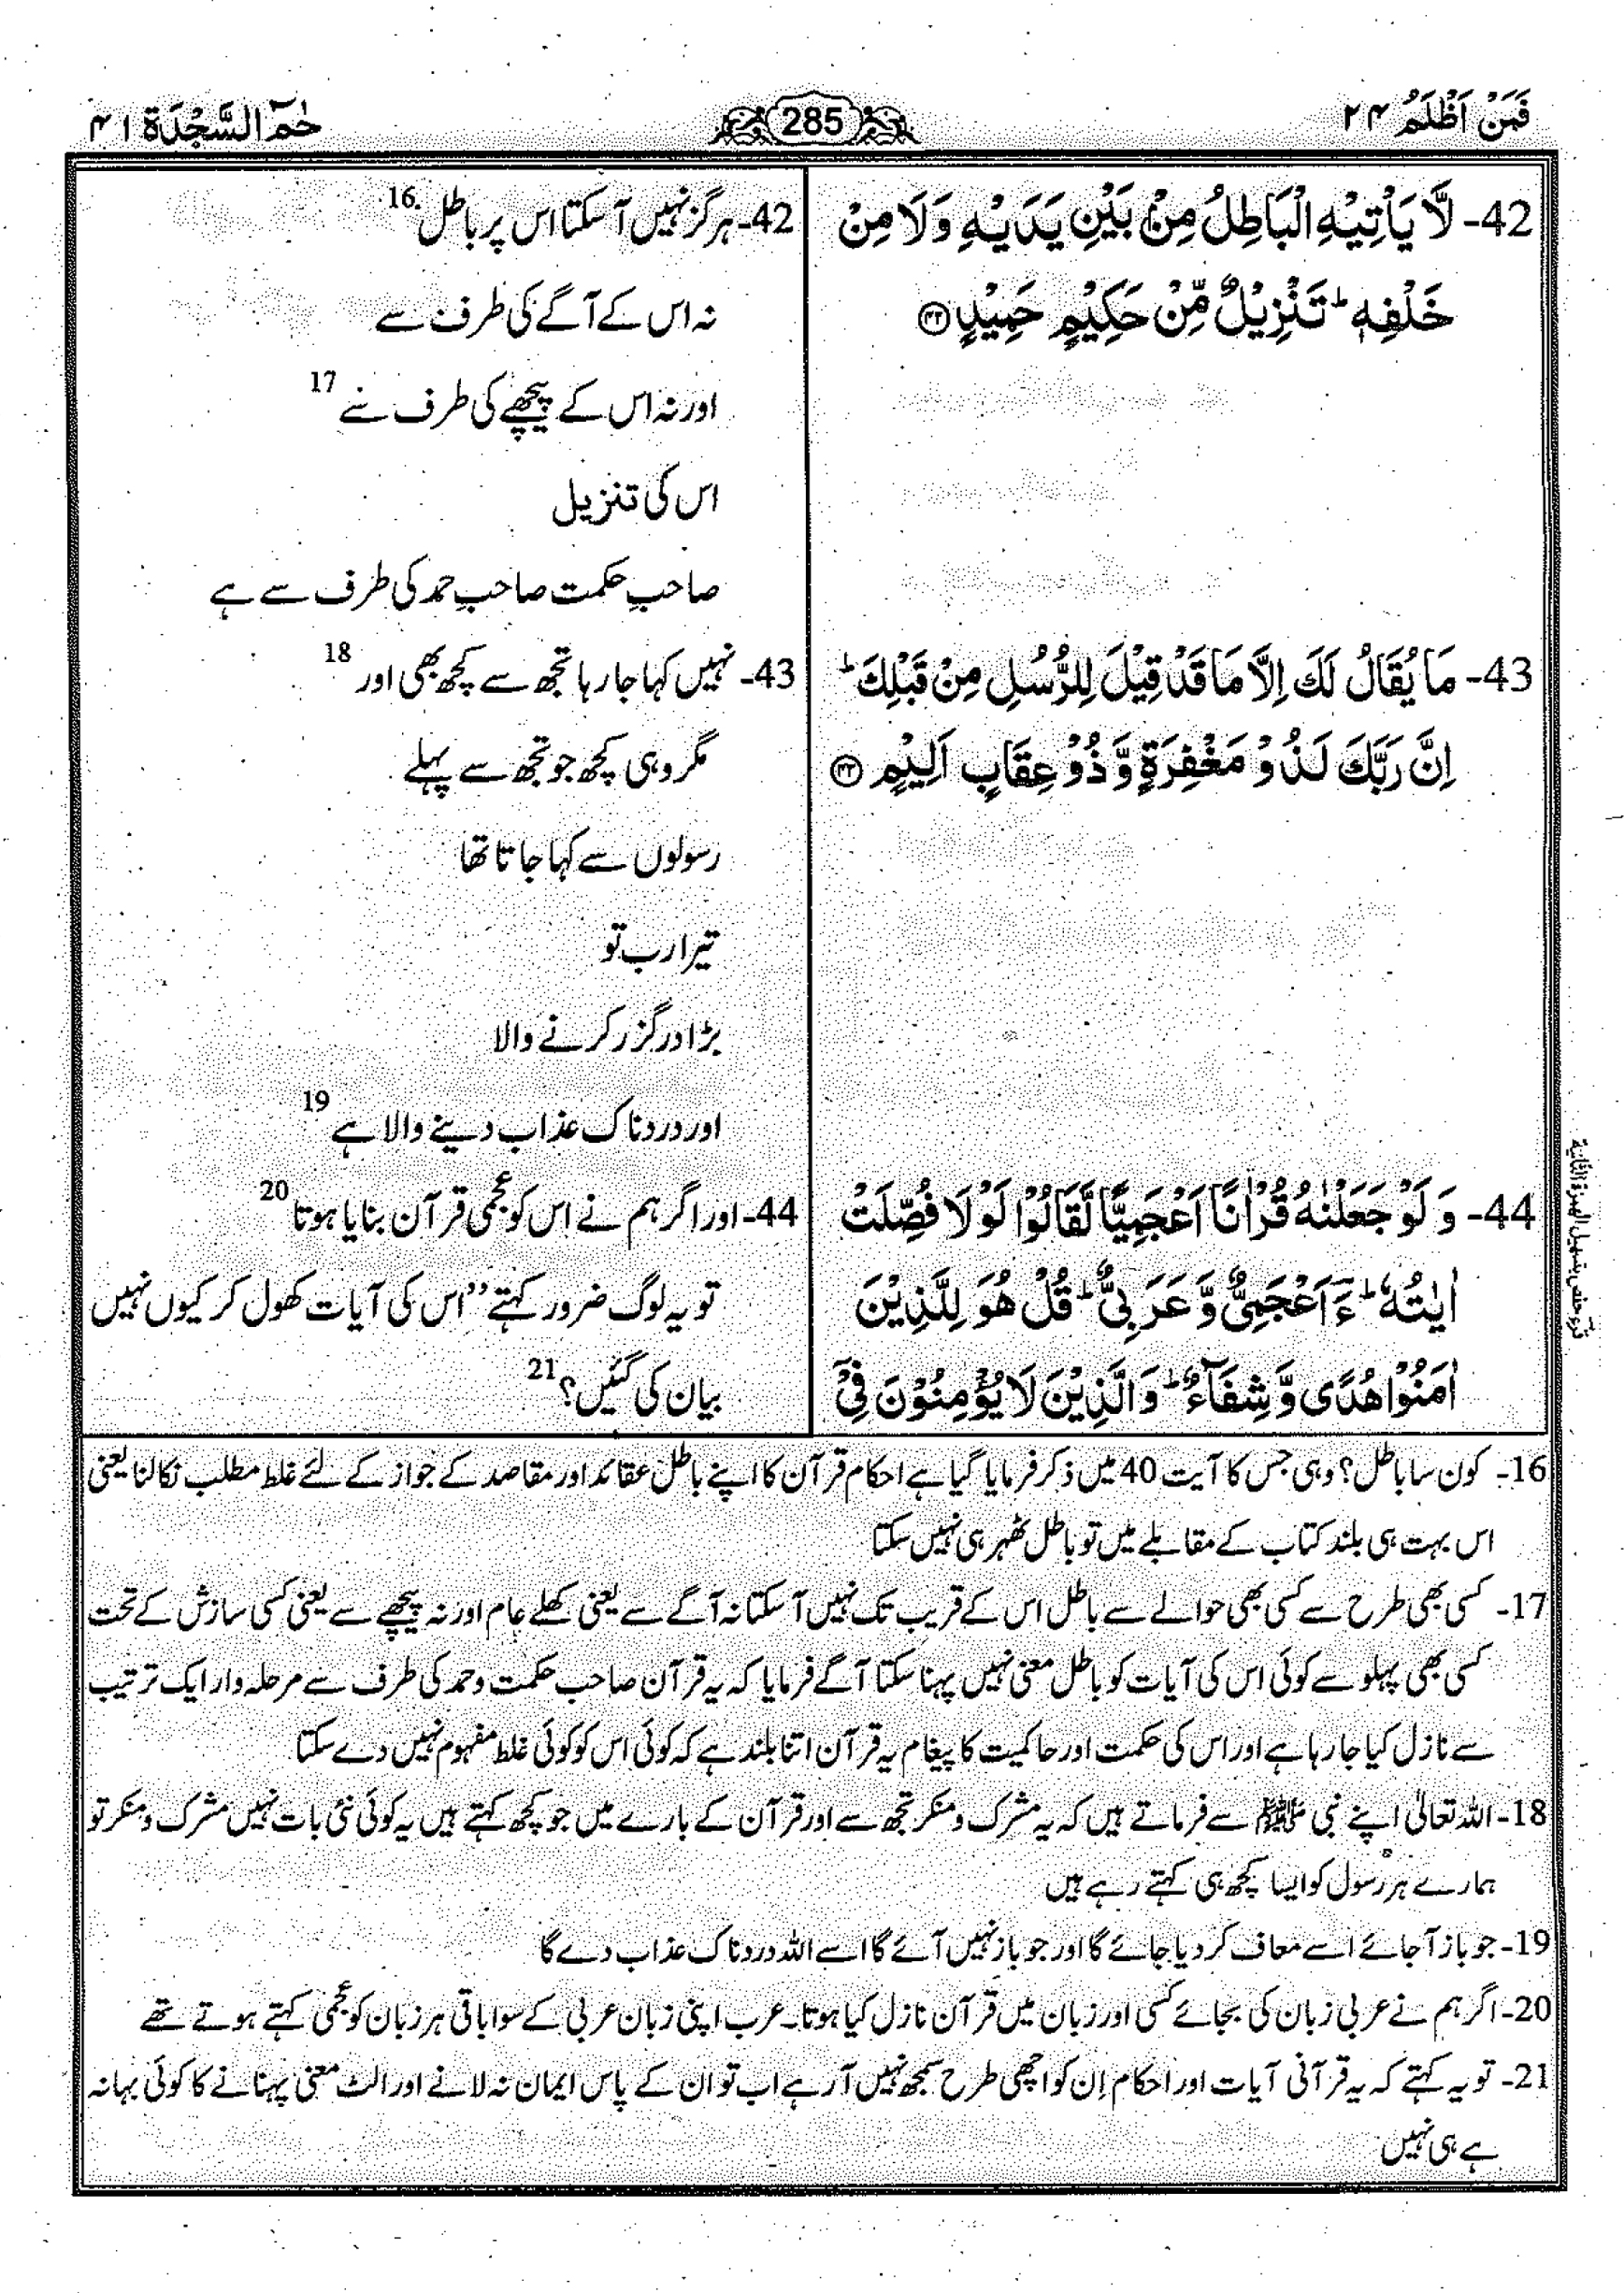 فَمَنْ اَظْلَمُ ۲۴
285
حٰمٓ السَّجْدَة ۴۱
42- لَّا يَاْتِيْهِ الْبَاطِلُ مِنْۢ بَيْنِ يَدَيْهِ وَلَا مِنْ
خَلْفِهٖ ؕ تَنْزِيْلٌ مِّنْ حَكِيْمٍ حَمِيْدٍ ۴۲
43- مَا يُقَالُ لَكَ اِلَّا مَا قَدْ قِيْلَ لِلرُّسُلِ مِنْ قَبْلِكَ ؕ
اِنَّ رَبَّكَ لَذُوْ مَغْفِرَةٍ وَّ ذُوْ عِقَابٍ اَلِيْمٍ ۴۳
44- وَ لَوْ جَعَلْنٰهُ قُرْاٰنًا اَعْجَمِيًّا لَّقَالُوْا لَوْ لَا فُصِّلَتْ
اٰيٰتُهٗ ؕ ءَؔاَعْجَمِيٌّ وَّ عَرَبِيٌّ ؕ قُلْ هُوَ لِلَّذِيْنَ
اٰمَنُوْا هُدًى وَّ شِفَآءٌ ؕ وَ الَّذِيْنَ لَا يُؤْمِنُوْنَ فِيْۤ
42- ہرگز نہیں آ سکتا اس پر باطل 16
نہ اس کے آگے کی طرف سے
اور نہ اس کے پیچھے کی طرف سے 17
اس کی تنزیل
صاحبِ حکمت صاحبِ حمد کی طرف سے ہے
43- نہیں کہا جا رہا تجھ سے کچھ بھی اور 18
مگر وہی کچھ جو تجھ سے پہلے
رسولوں سے کہا جاتا تھا
تیرا رب تو
بڑا درگزر کرنے والا
اور دردناک عذاب دینے والا ہے 19
44- اور اگر ہم نے اس کو عجمی قرآن بنایا ہوتا 20
تو یہ لوگ ضرور کہتے ’’اس کی آیات کھول کر کیوں نہیں
بیان کی گئیں؟ 21
16- کون سا باطل؟ وہی جس کا آیت 40 میں ذکر فرمایا گیا ہے احکام قرآن کا اپنے باطل عقائد اور مقاصد کے جواز کے لئے غلط مطلب نکالنا یعنی
اس بہت ہی بلند کتاب کے مقابلے میں تو باطل ٹھہر ہی نہیں سکتا
17- کسی بھی طرح سے کسی بھی حوالے سے باطل اس کے قریب تک نہیں آ سکتا نہ آگے سے یعنی کھلے عام اور نہ پیچھے سے یعنی کسی سازش کے تحت
کسی بھی پہلو سے کوئی اس کی آیات کو باطل معنی نہیں پہنا سکتا آگے فرمایا کہ یہ قرآن صاحب حکمت وحمد کی طرف سے مرحلہ وار ایک ترتیب
سے نازل کیا جا رہا ہے اور اس کی حکمت اور حاکمیت کا پیغام یہ قرآن اتنا بلند ہے کہ کوئی اس کو کوئی غلط مفہوم نہیں دے سکتا
18- اللہ تعالیٰ اپنے نبی ﷺ سے فرماتے ہیں کہ یہ مشرک و منکر تجھ سے اور قرآن کے بارے میں جو کچھ کہتے ہیں یہ کوئی نئی بات نہیں مشرک و منکر تو
ہمارے ہر رسول کو ایسا کچھ ہی کہتے رہے ہیں
19- جو باز آ جائے اسے معاف کر دیا جائے گا اور جو باز نہیں آئے گا اسے اللہ دردناک عذاب دے گا
20- اگر ہم نے عربی زبان کی بجائے کسی اور زبان میں قرآن نازل کیا ہوتا۔ عرب اپنی زبان عربی کے سوا باقی ہر زبان کو عجمی کہتے ہوتے تھے
21- تو یہ کہتے کہ یہ قرآنی آیات اور احکام اِن کو اچھی طرح سمجھ نہیں آ رہے اب تو ان کے پاس ایمان نہ لانے اور الٹ معنی پہنانے کا کوئی بہانہ
ہے ہی نہیں
قرء حفص بتسهيل الهمزة الثانية